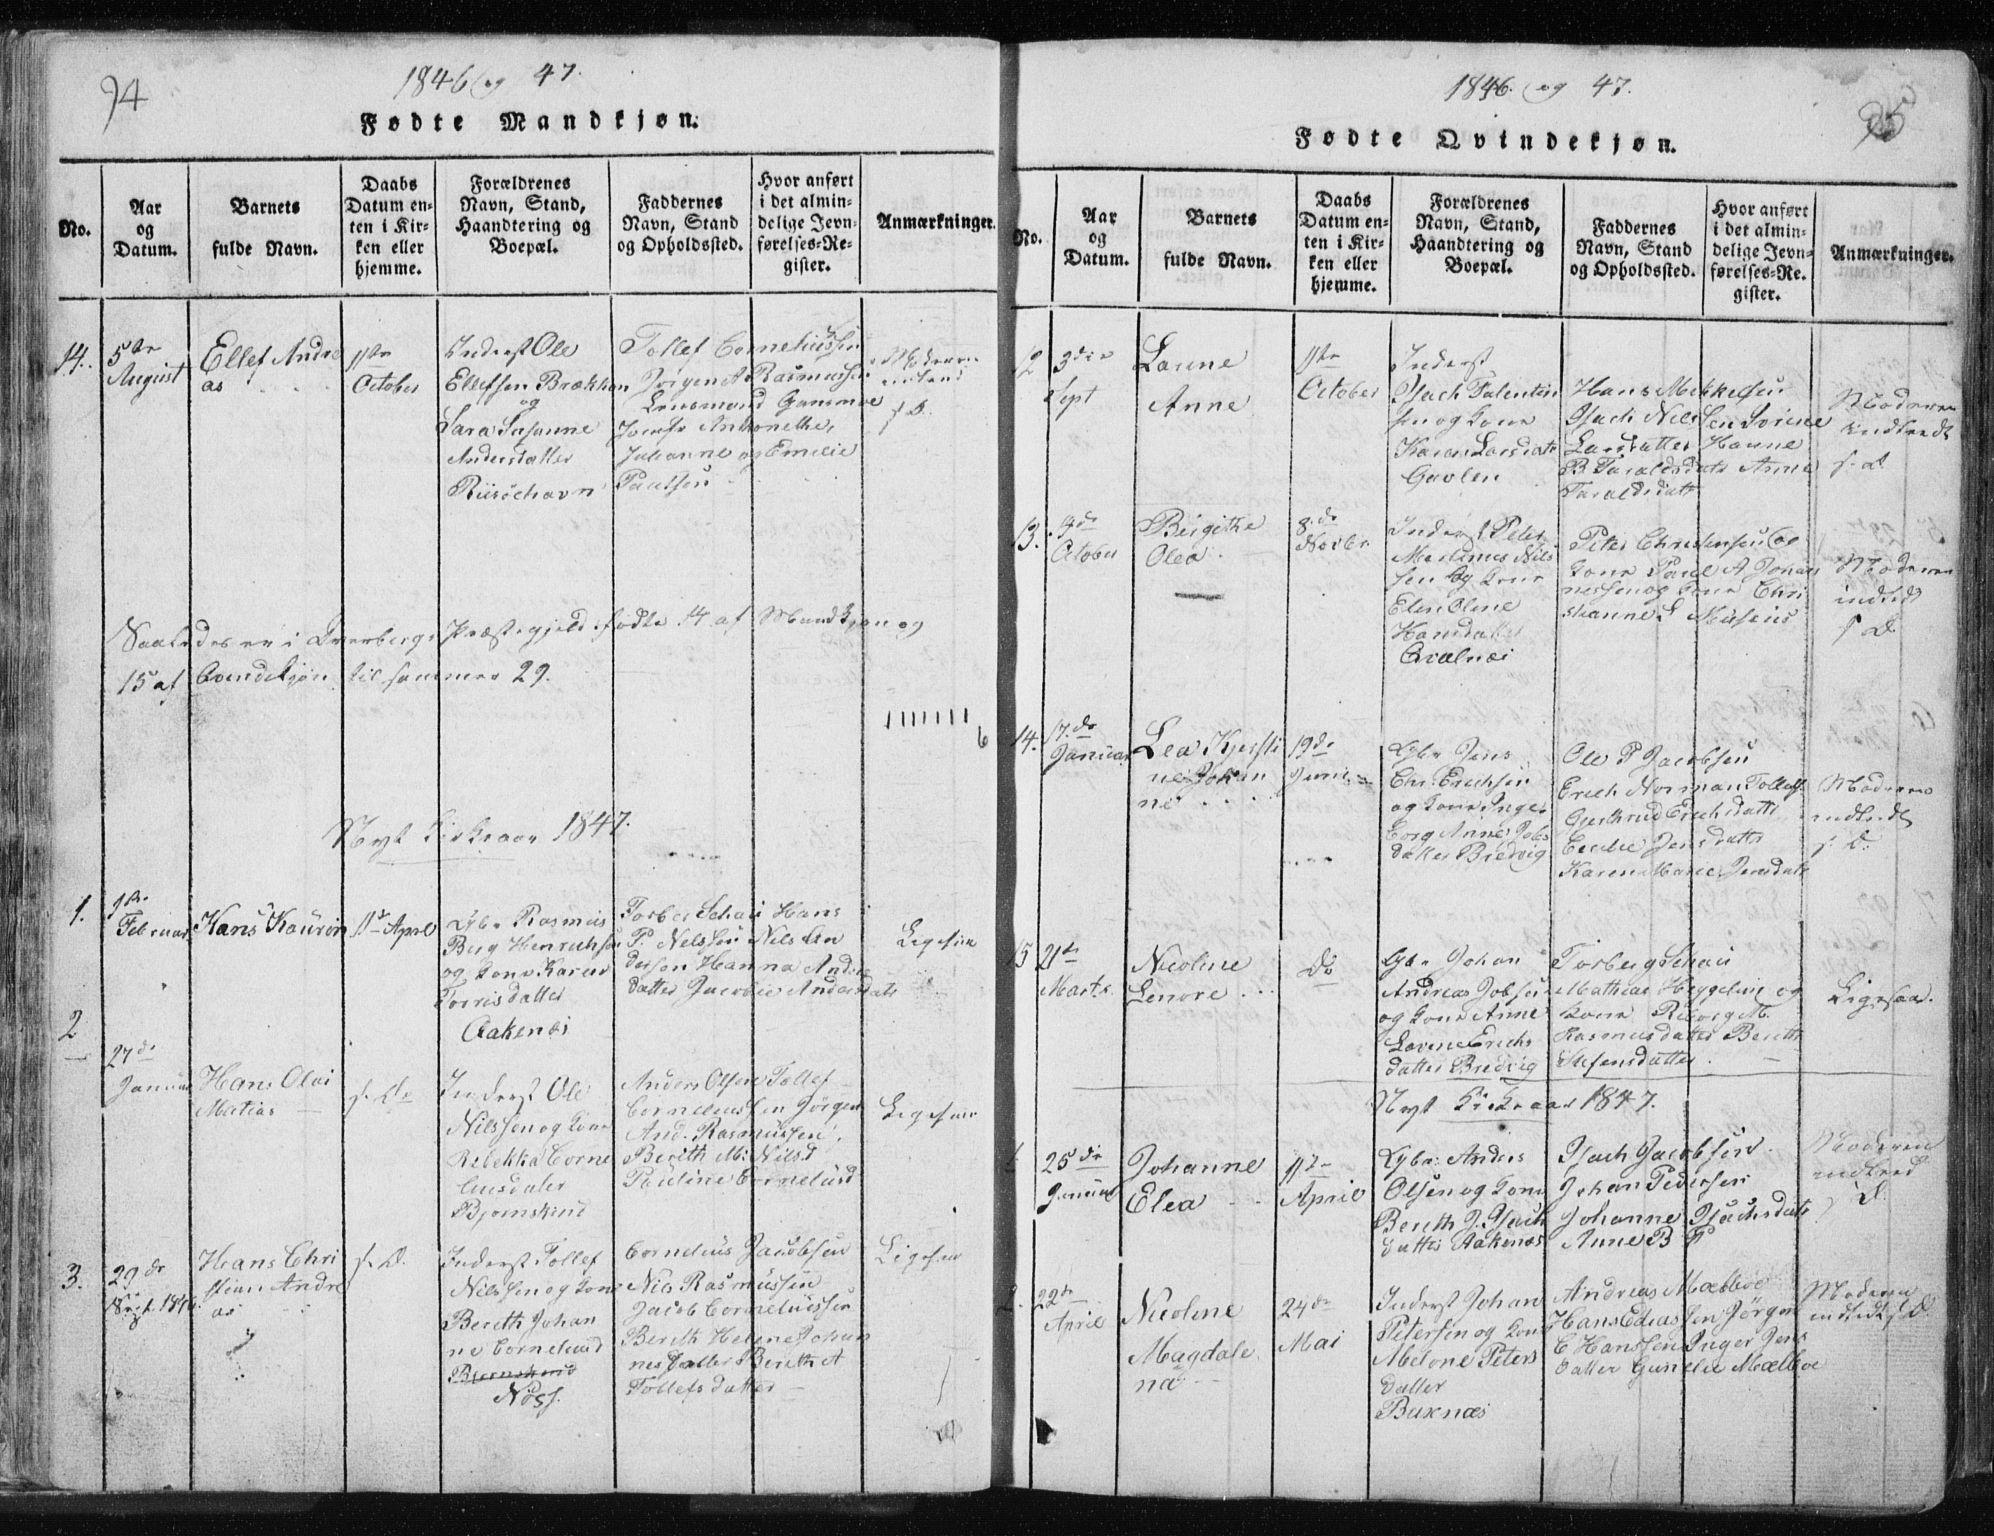 94
1846 og 47.
Fødte Mandkjøn.
No.
Aar
og
Datum.
Barnets
fulde Navn.
Daabs
Datum en-
ten i Kir-
ken eller
hjemme.
Forældrenes
Navn, Stand,
Haandtering og
Boepæl.
Faddernes
Navn, Stand
og Opholdssted.
Hvor anført
i det almin-
delige Jevn-
førelses-Re-
gister.
Anmærkninger.
14.
5te
August
Ellef Andre
as
11te
October
Inderst Ole
Ellefsen Brækhan
og
Sara Susanne
Andersdatter
Riisöehavn
Tollef Corneliussen
Jørgen A Rasmussen
Lensmand
Antonette,
Johanne og Emilie
Paulsen
Saaledes er i Præstegjeld fødte 14 af Mandkjøn og
15 af Qvindekjøn til sammen 29.
6
Nyt Kirkeaar 1847.
1.
1te
Februar
Hans Kaurin
11te April
Lybr Rasmus
Berg Henrichsen
og Kone Karen
Torrisdatter
Aakenæs
Torber Schau Hans
P. Nelssen Nils An
dersen Hanna Anders
datter Jacobie Andersdatr
Ligesaa
2
27de
Januar
Hans Olai
Matias
s. D.
Inderst Ole
Nilssen og Kone
Rebekka Corne
liusdater
Bjørnskind
Anders Olsen Tollef
Corneliussen Jørgen
And. Rasmussen,
Berith M. Nilsd
Pauline Corneliusd
Ligesaa
3.
29de
Sept. 1846.
Hans Chri
stian Andre
as
s. D.
Inderst Tollef
Nilssen og Kone
Berith Johan
ne Corneliusd
Bjørnskind
Nøss.
Cornelius Jacobsen
Nils Rasmussen
Jacob Corneliussen
Berith Helene Johan
nesdatter Berith A
Tollefsdatter
Ligesaa
95
1846. og 47.
Fødte Qvindekjøn.
No.
Aar
og
Datum.
Barnets
fulde Navn.
Daabs
Datum en-
ten i Kir-
ken eller
hjemme.
Forældrenes
Navn, Stand,
Haandtering og
Boepæl.
Faddernes
Navn, Stand
og Opholdssted.
Hvor anført
i det almin-
delige Jevn-
førelses-Re-
gister.
Anmærkninger.
12
3die
Sept
Anne
11te
October
Inderst
Isach Falentin
sen og Kone
Karen Larsdatr
Gavlen
Hans Mekkelsen
Isach Nilssen Sorine
Larsdatter Hanne
B Taraldsdatr Anne
Taraldsdatr
Moderen
indledt
s. D.
13.
October
Birgithe
Olea
8de
Novbr
Inderst Peter
Martinus Nils
sen og Kone
Elen Oline
Hansdatter
Qvalnæs
Peter Christensen og
Kone Parel A Johan
nessen og Kone Chri
stianne S Musæus
Moderen
indledt
s D.
14.
17.de
Januar
Lea Kjersti
ne Johan
ne
19de
Juni
Lybr Jens
Chr. Erichsen
og Kone Inge
borg Anne Jobs
datter Bredvig
Ole P Jacobsen
Erich Norman Tollefs
Gjerthrud Erichsdatr
Cecilie Jensdatter
Karen Marie Jensdatr
Moderen
indledt
s. D.
15
21de
Marts
Nicoline
Lenore
Do
Lybr Johan
Andreas Jobsen
og Kone Anne
Lovine Erichs
datter Bredvig
Torberg Schau
Mathias Heggelund og
Kone Reborg M.
Rasmusdatter Berith
Stefensdatter.
Ligesaa.
Nyt Kirkeaar 1847.
1
25de
Januar
Johanne
Elea
11te
April
Lybr. Anders
Olsen og Kone
Berith J. Isach
datter Aakenæs
Isach Jacobsen
Johan Pedersen
Johanne Isachsdatr
Anne B P
Moderen
indled
D.
2.
22de
April
Nicoline
Magdale
na
24de
Mai
Inderst Johan
Petersen og Kone
Melone Peters
datter
Buknæs
Andreas Mælboe
Hans Ediassen Jørgen
C Hanssen Inger Jens
datter Gunelie Mælboe
Moderen
indledt s. D.